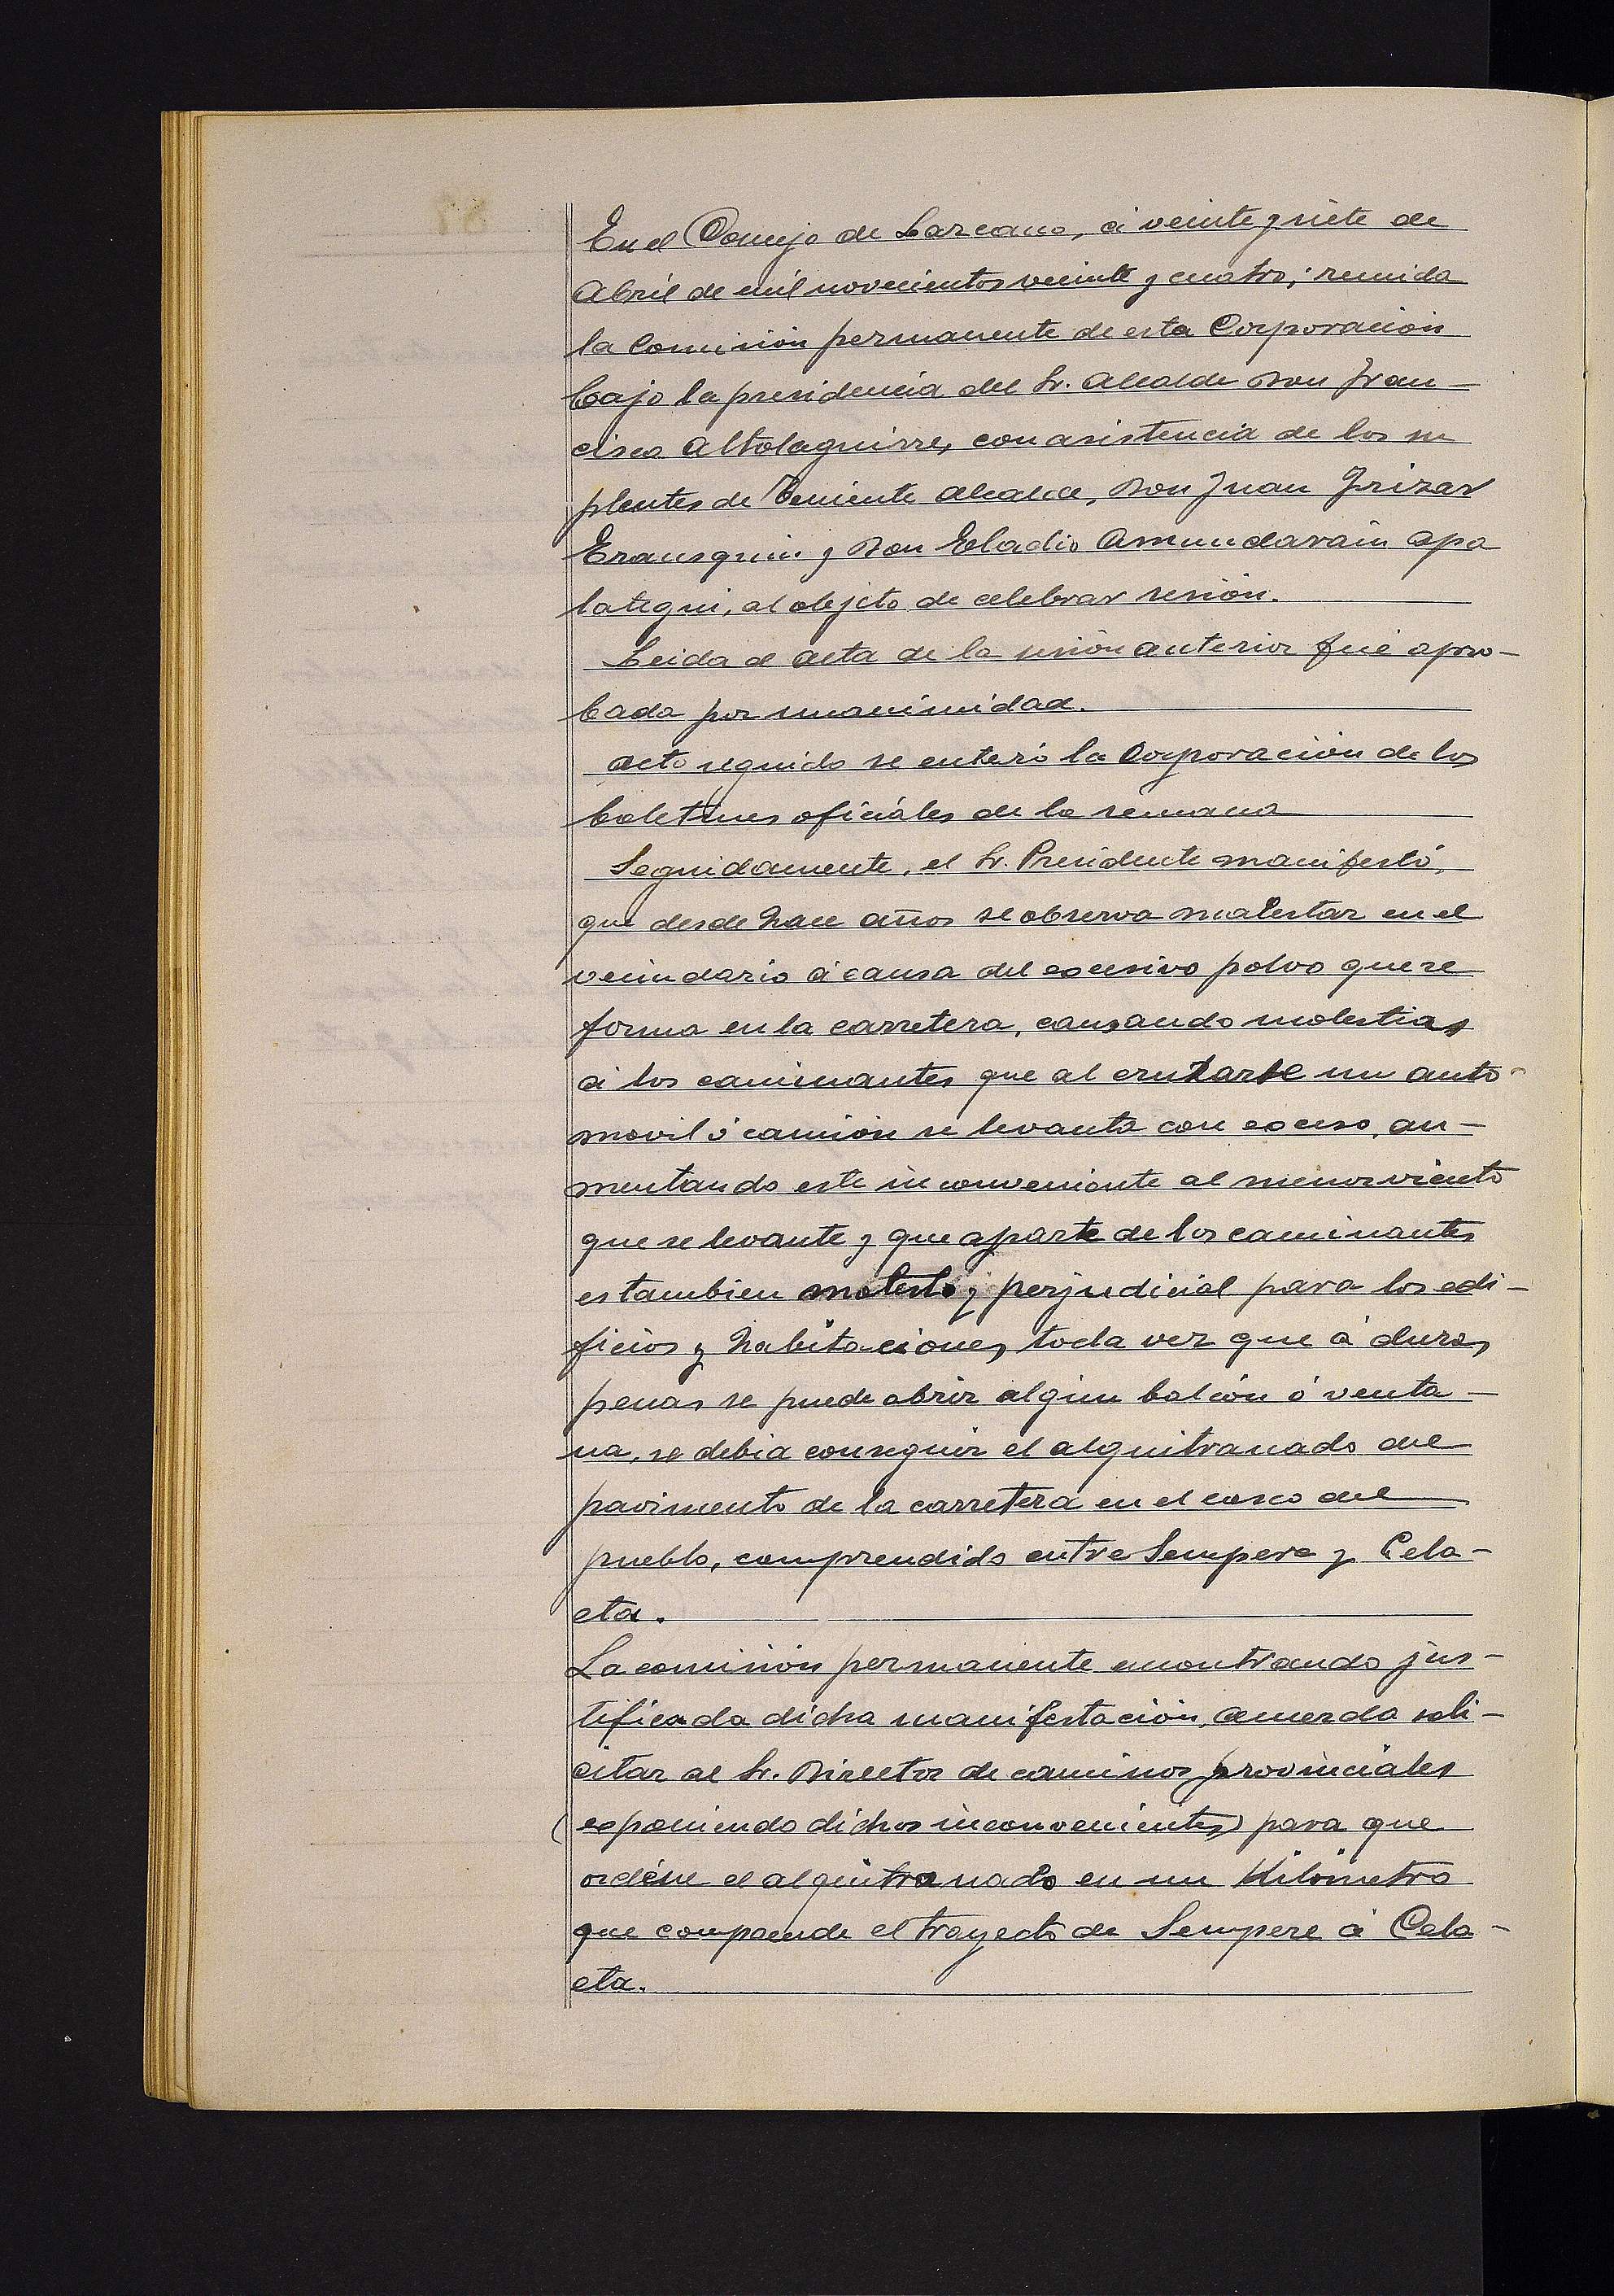 En el Concejo de Lazcano, á veinte y siete de
Abril de mil novecientos veinte y cuatro; reunida
la Comisión permanente de esta Corporación
bajo la presidencia del Sr. Alcalde Don Fran-
cisco Altolaguirre, con asistencia de los su
plentes de Teniente Alcalde, Don Juan Irizar
Erausquin y Don Eladio Amundarain Apa
lategui, al objeto de celebrar sesión.
Leida el acta de la sesión anterior fué apro-
bada por unanimidad.
Acto seguido se enteró la Corporación de los
boletines oficiales de la semana
Seguidamente, el Sr. Presidente manifestó,
que desde hace años se observa malestar en el
vecindario á causa del excesivo polvo que se
forma en la carretera, causando molestias
á los caminantes que al cruzarse un auto-
movil ó camión se levanta con exceso, au-
mentando este inconveniente al menor viento
que se levante y que aparte de los caminantes
es tambien molesto y perjudicial para los edi-
ficios y habitaciones, toda vez que á duras
penas se puede abrir algún balcón ó venta-
na, se debia conseguir el alquitranado del
pavimento de la carretera en el casco del
pueblo, comprendido entre Sempere y Cela-
eta.
La comisión permanente encontrando jus-
tificada dicha manifestación, acuerda soli-
citar al Sr. Director de caminos provinciales
(exponiendo dichos inconvenientes) para que
ordene el alquitranado en un Kilómetro
que comprende el trayecto de Sempere á Cela-
eta.